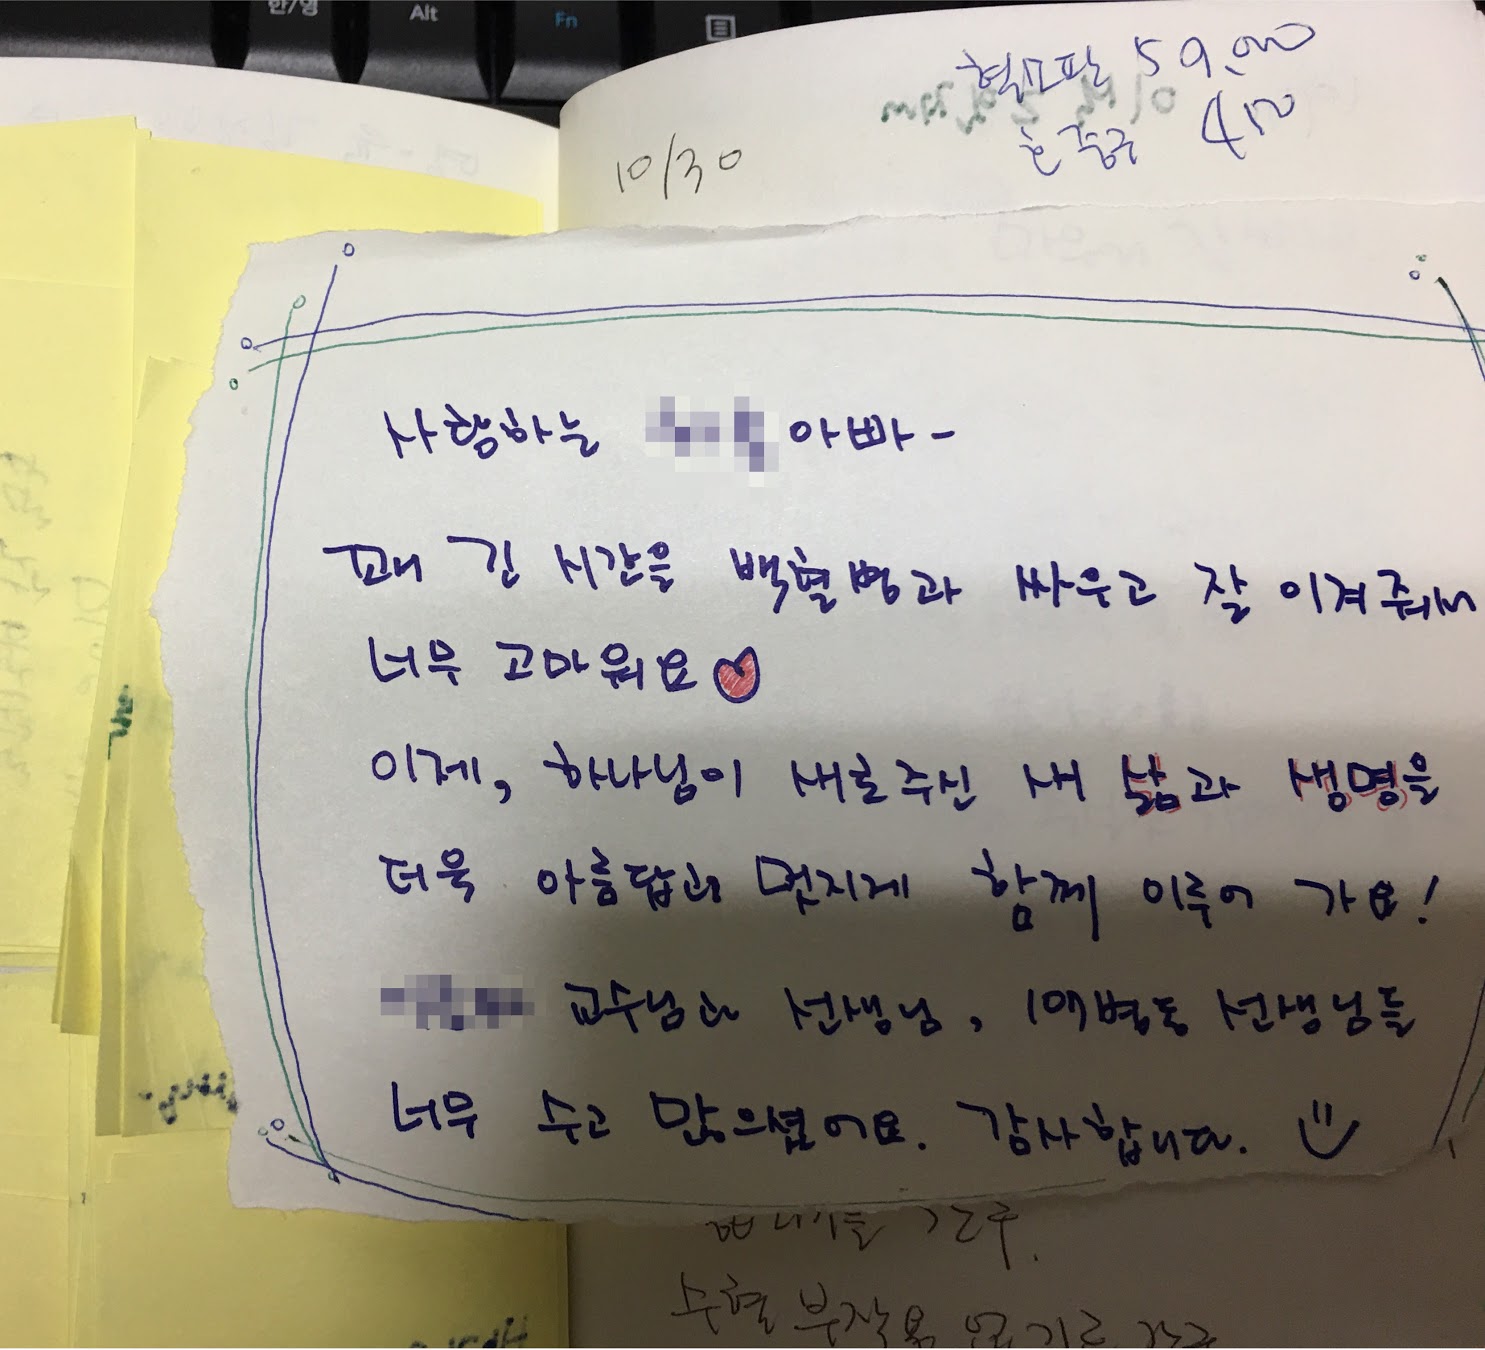 한/영
Alt
Fn
혈소판 59,000
호중구 450
10/30
사랑하는 아빠-
꽤 긴 시간을 백혈병과 싸우고 잘 이겨줘서
너무 고마워요
이제, 하나님이 새로 주신 새 삶과 생명을
더욱 아름답고 멋지게 함께 이루어 가요!
교수님과 선생님, 병동 선생님들
너무 수고 많으셨어요. 감사합니다.
수혈 부작용